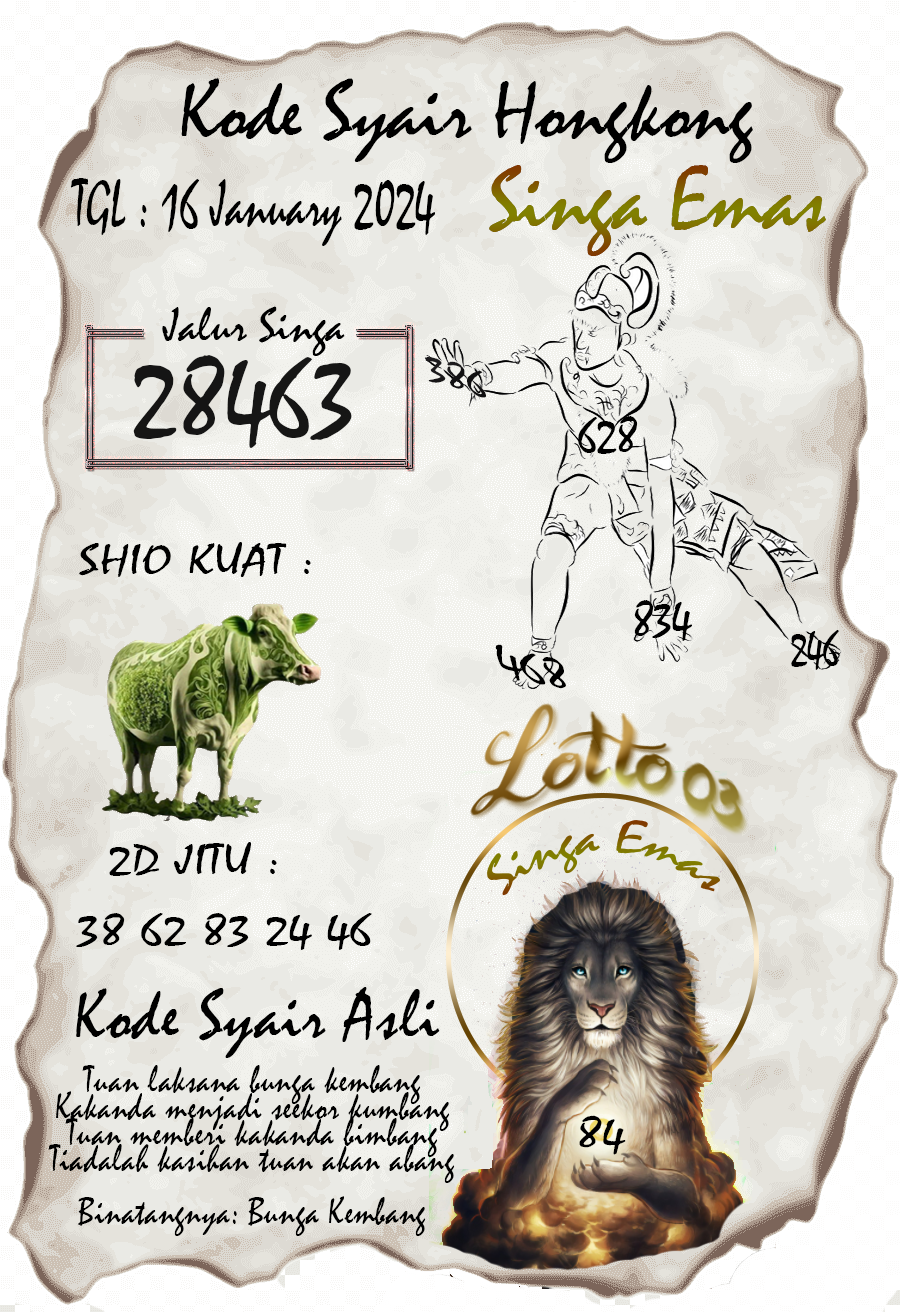 Kode Syair Hongkong
TGL : 16 January 2024
Singa Emas
Jalur Singa
28463
386
628
834
468
246
SHIO KUAT :
2D JITU :
38 62 83 24 46
Lotto 03
Singa Emas
84
Kode Syair Asli
Tuan laksana bunga kembang
Kakanda menjadi seekor kumbang
Tuan memberi kakanda bimbang
Tiadalah kasihan tuan akan abang
Binatangnya: Bunga Kembang